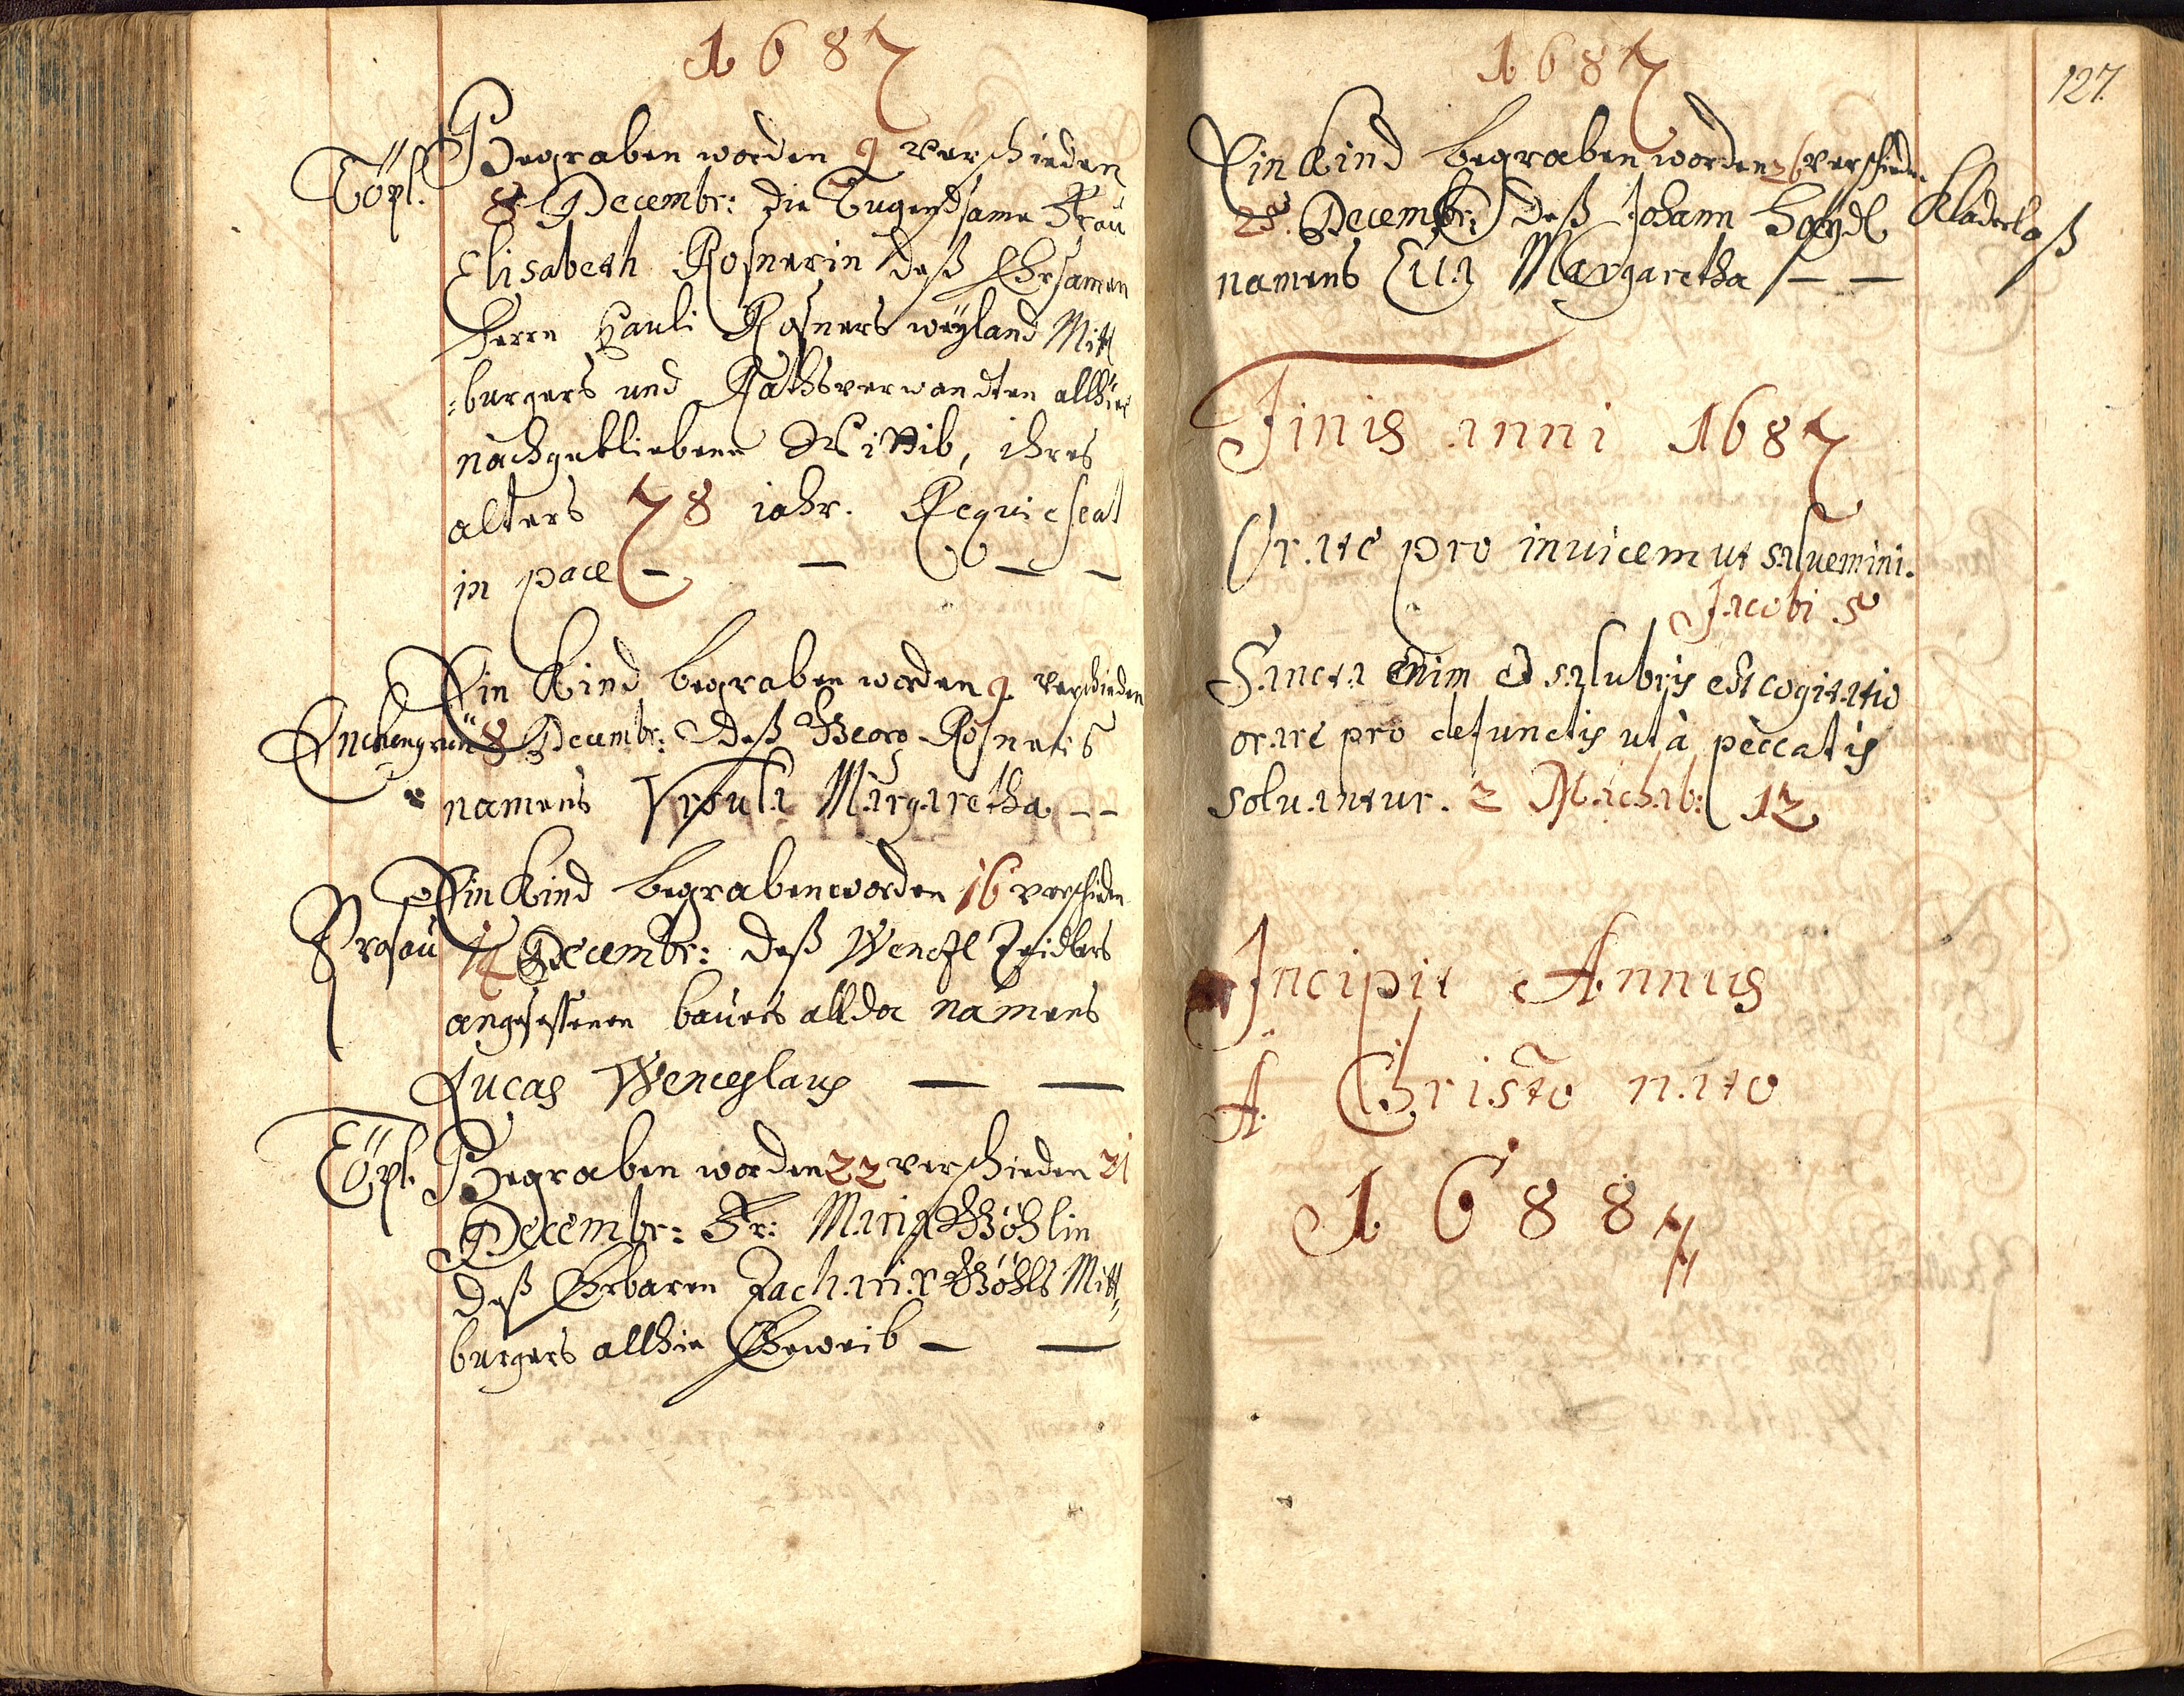 1687
Töpl. Begraben worden 9 verschieden
8 Decembr: die Tugendsame Frau
Elisabeth Rosnerin deß Ehrsamen
Herrn Pauli Rosners weyland Mitt
=burgers und Rathsverwandten allhier
nachgebliebene Wittib, ihres
alters 78 iahr. Requiescat
in pace — — — —
Ein Kind begraben worden 9 verschieden
Enckengrün 8 Decembr: deß Georg Rosners
namens Vrsula Margaretha — —
Ein Kind begraben worden 16 verschieden
Prosau Decembr: deß Wenczl Zeidlers
angesessenen baurs allda namens
Lucas Wenceslaus — —
Töpl. Begraben worden 22 verschieden 21
Decembr: Fr: Maria Göhlin
deß Erbaren Zachariæ Göhls Mitt=
burgers allhie Eheweib — —
1687
127.
Ein Kind begraben worden 26 verschieden
25. Decembr: deß Johann Kladerlaß
namens Eua Margaretha — —
Finis anni 1687
Orate pro inuicem ut saluemini.
Jacobi 5
Sancta enim et salubris est cogitatio
orare pro defunctis ut à peccatis
soluantur. 2 Machab: 12
Incipit Annus
A Christo nato
1688